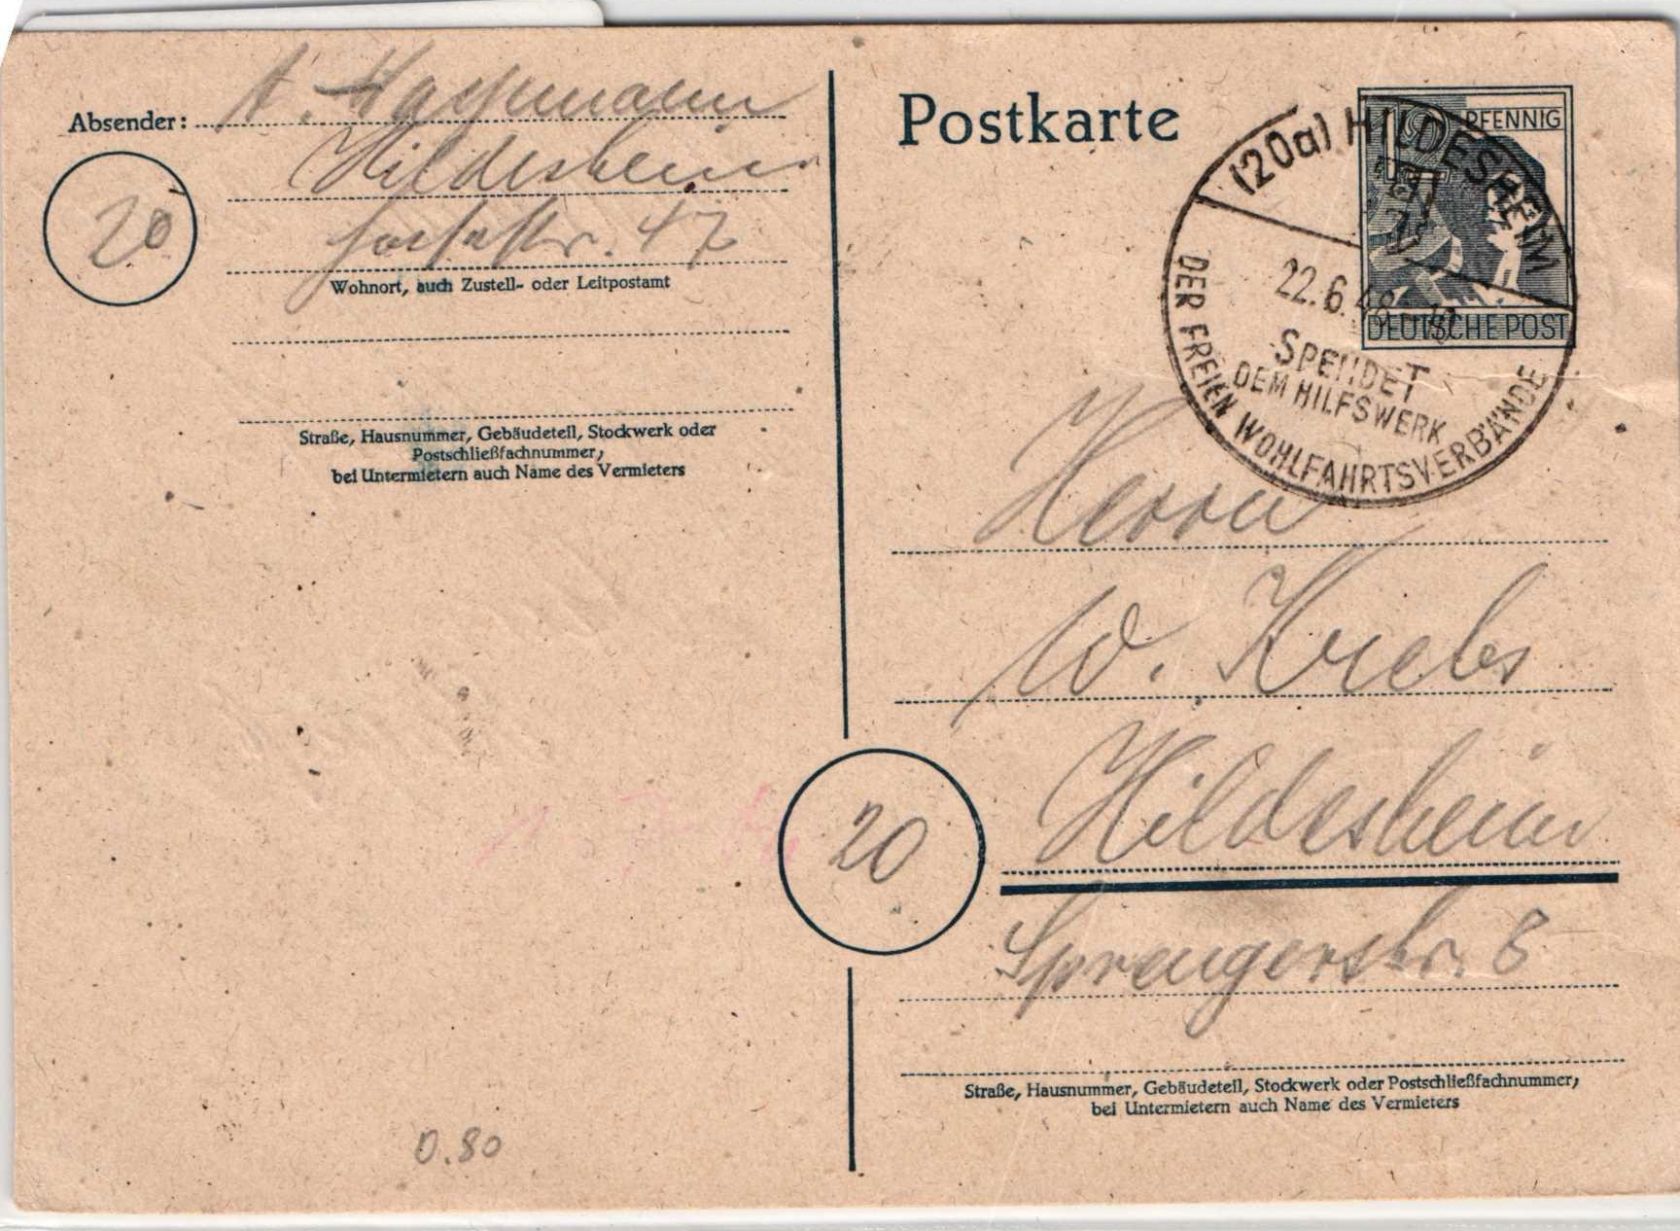 Absender: A. Hagemann
Hildesheim
20
47
Wohnort, auch Zustell- oder Leitpostamt
Straße, Hausnummer, Gebäudeteil, Stockwerk oder
Postschließfachnummer,
bei Untermietern auch Name des Vermieters
Postkarte
PFENNIG
DEUTSCHE POST
(20a) HILDESHEIM
22.6.48
SPENDET
DEM HILFSWERK
DER FREIEN WOHLFAHRTSVERBÄNDE
Herrn
W. Krebs
20
Hildesheim
Sprengerstr. 8
Straße, Hausnummer, Gebäudeteil, Stockwerk oder Postschließfachnummer,
bei Untermietern auch Name des Vermieters
0.80